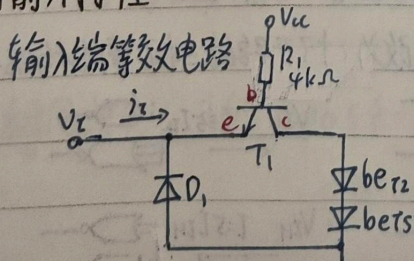 输入端等效电路
Vcc
R₁
4kΩ
b
e
c
T₁
v_I
i_I
D₁
be_T2
be_T5